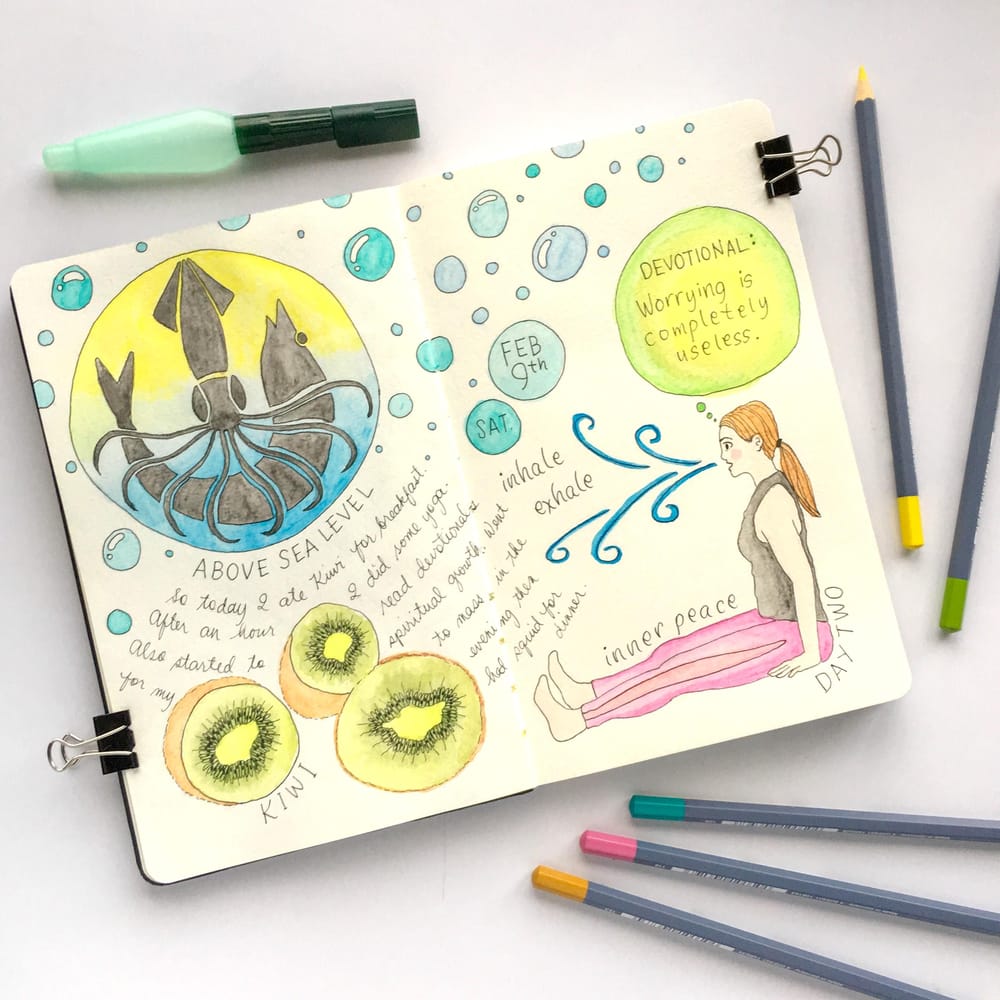 ABOVE SEA LEVEL
So today I ate Kiwi for breakfast.
After an hour I did some yoga.
Also started to read devotionals
for my spiritual growth. Went
to mass in the
evening then
had squid for
dinner.
KIWI
FEB
9th
SAT.
DEVOTIONAL:
Worrying is
completely
useless.
inhale
exhale
inner peace
DAY TWO